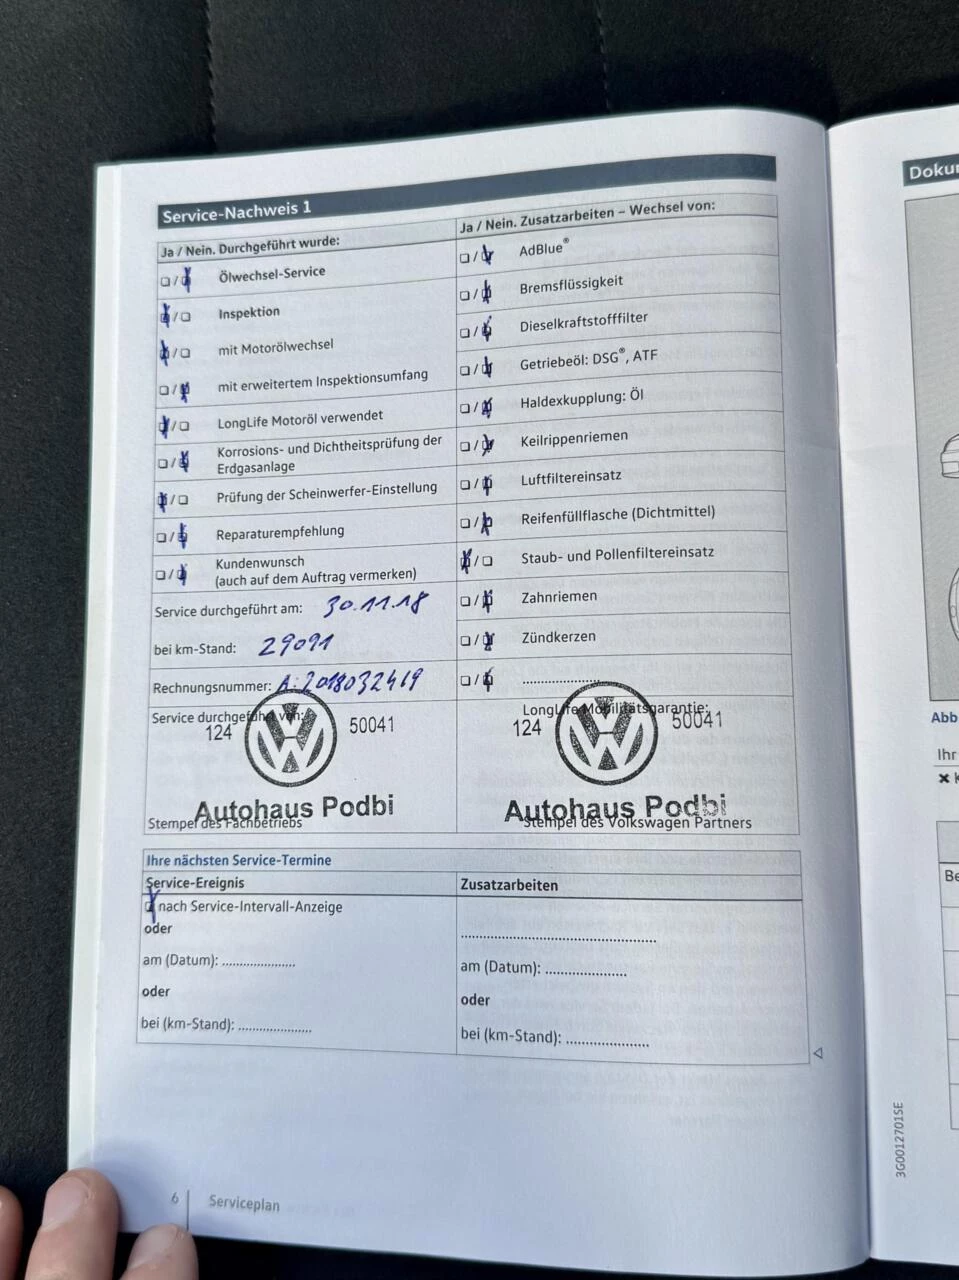 Service-Nachweis 1
Ja / Nein. Durchgeführt wurde:
Ölwechsel-Service
Inspektion
mit Motorölwechsel
mit erweitertem Inspektionsumfang
LongLife Motoröl verwendet
Korrosions- und Dichtheitsprüfung der
Erdgasanlage
Prüfung der Scheinwerfer-Einstellung
Reparaturempfehlung
Kundenwunsch
(auch auf dem Auftrag vermerken)
Service durchgeführt am: 30.11.18
bei km-Stand: 29091
Rechnungsnummer: A:2018032419
Service durchgeführt von:
124 50041
Autohaus Podbi
Stempel des Fachbetriebs
Ja / Nein. Zusatzarbeiten – Wechsel von:
AdBlue®
Bremsflüssigkeit
Dieselkraftstofffilter
Getriebeöl: DSG®, ATF
Haldexkupplung: Öl
Keilrippenriemen
Luftfiltereinsatz
Reifenfüllflasche (Dichtmittel)
Staub- und Pollenfiltereinsatz
Zahnriemen
Zündkerzen
LongLife Mobilitätsgarantie:
124 50041
Autohaus Podbi
Stempel des Volkswagen Partners
Ihre nächsten Service-Termine
Service-Ereignis
nach Service-Intervall-Anzeige
oder
am (Datum): .....................
oder
bei (km-Stand): .....................
Zusatzarbeiten
am (Datum): .....................
oder
bei (km-Stand): .....................
6 Serviceplan
Abb
Ihr
3G0012701SE